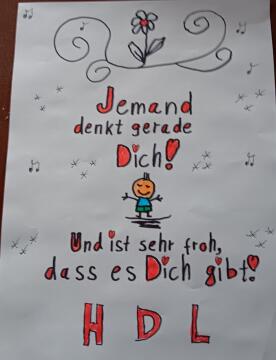 Jemand
denkt gerade
Dich!
Und ist sehr froh,
dass es Dich gibt!
H D L